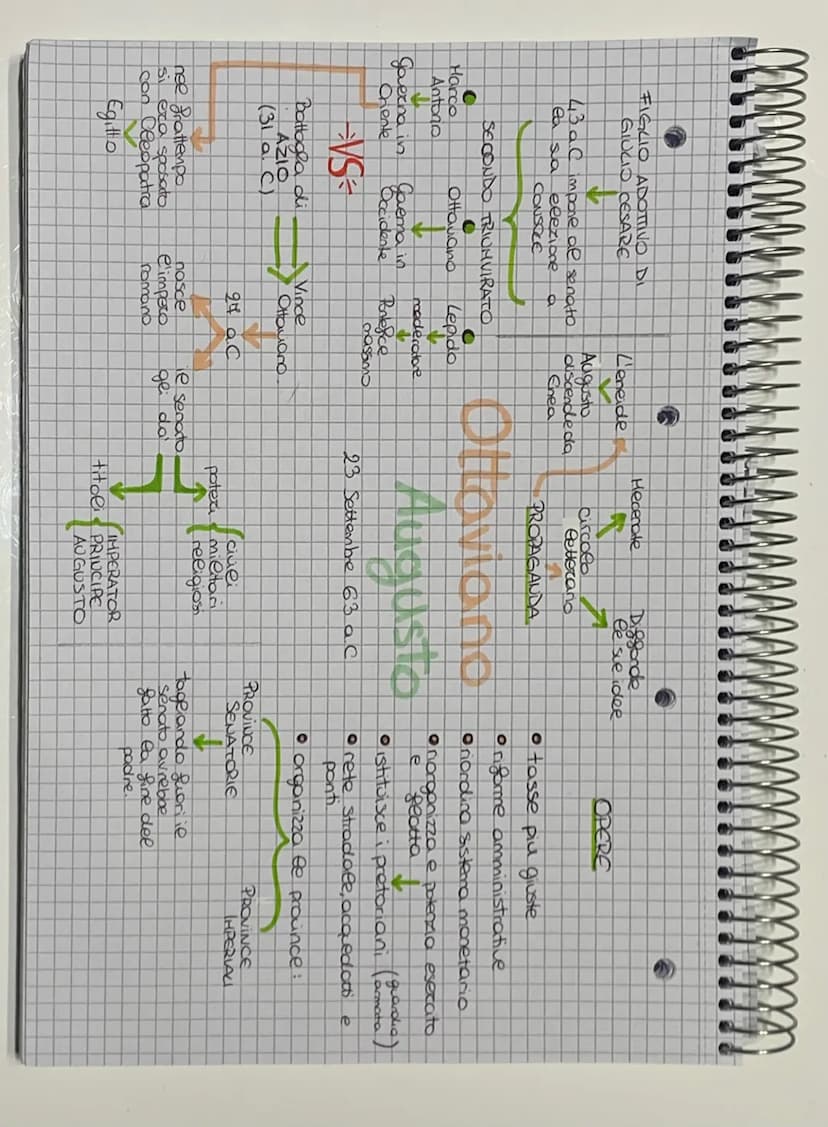 FIGLIO ADOTTIVO DI
GIULIO CESARE
43 a.C impone al senato
la sua elezione a
CONSOLE
SECONDO TRIUMVIRATO
Marco
Antonio
governa in
Oriente
Ottaviano
Governa in
Occidente
Lepido
moderatore
Pontefice
massimo
VS
Battaglia di
AZIO
(31 a.C)
Vince
Ottaviano.
27 a.C
nel frattempo
si era sposato
con Cleopatra
Egitto
nasce
l'impero
romano
il senato
gli dà
poteri
civili
militari
religiosi
titoli
IMPERATOR
PRINCIPE
AUGUSTO
L'eneide
Augusto
discende da
Enea
Mecenate
Diffonde
le sue idee
circolo
letterario
PROPAGANDA
Ottaviano
Augusto
23 Settembre 63 a.C
OPERE
• tasse più giuste
• riforme amministrative
• riordina sistema monetario
• riorganizza e potenzia esercito
e flotta
• istituisce i pretoriani (guardia
armata)
• rete stradale, acquedotti e
ponti
• organizza le province:
PROVINCE
SENATORIE
PROVINCE
IMPERIALI
tagliando fuori il
senato avrebbe
fatto la fine del
padre.